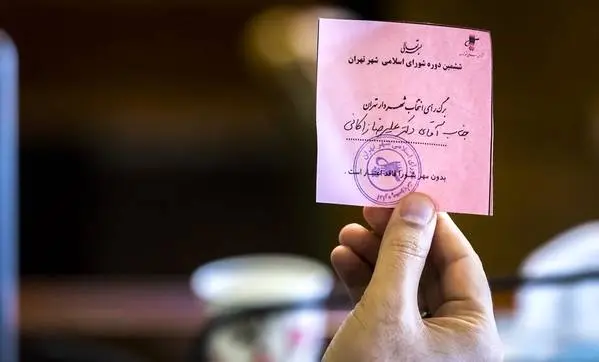 بسمه تعالی
ششمین دوره شورای اسلامی شهر تهران
برگ رای انتخاب شهردار تهران
جناب آقای دکتر علیرضا زاکانی
شورای اسلامی شهر تهران
بدون مهر شورا فاقد اعتبار است .